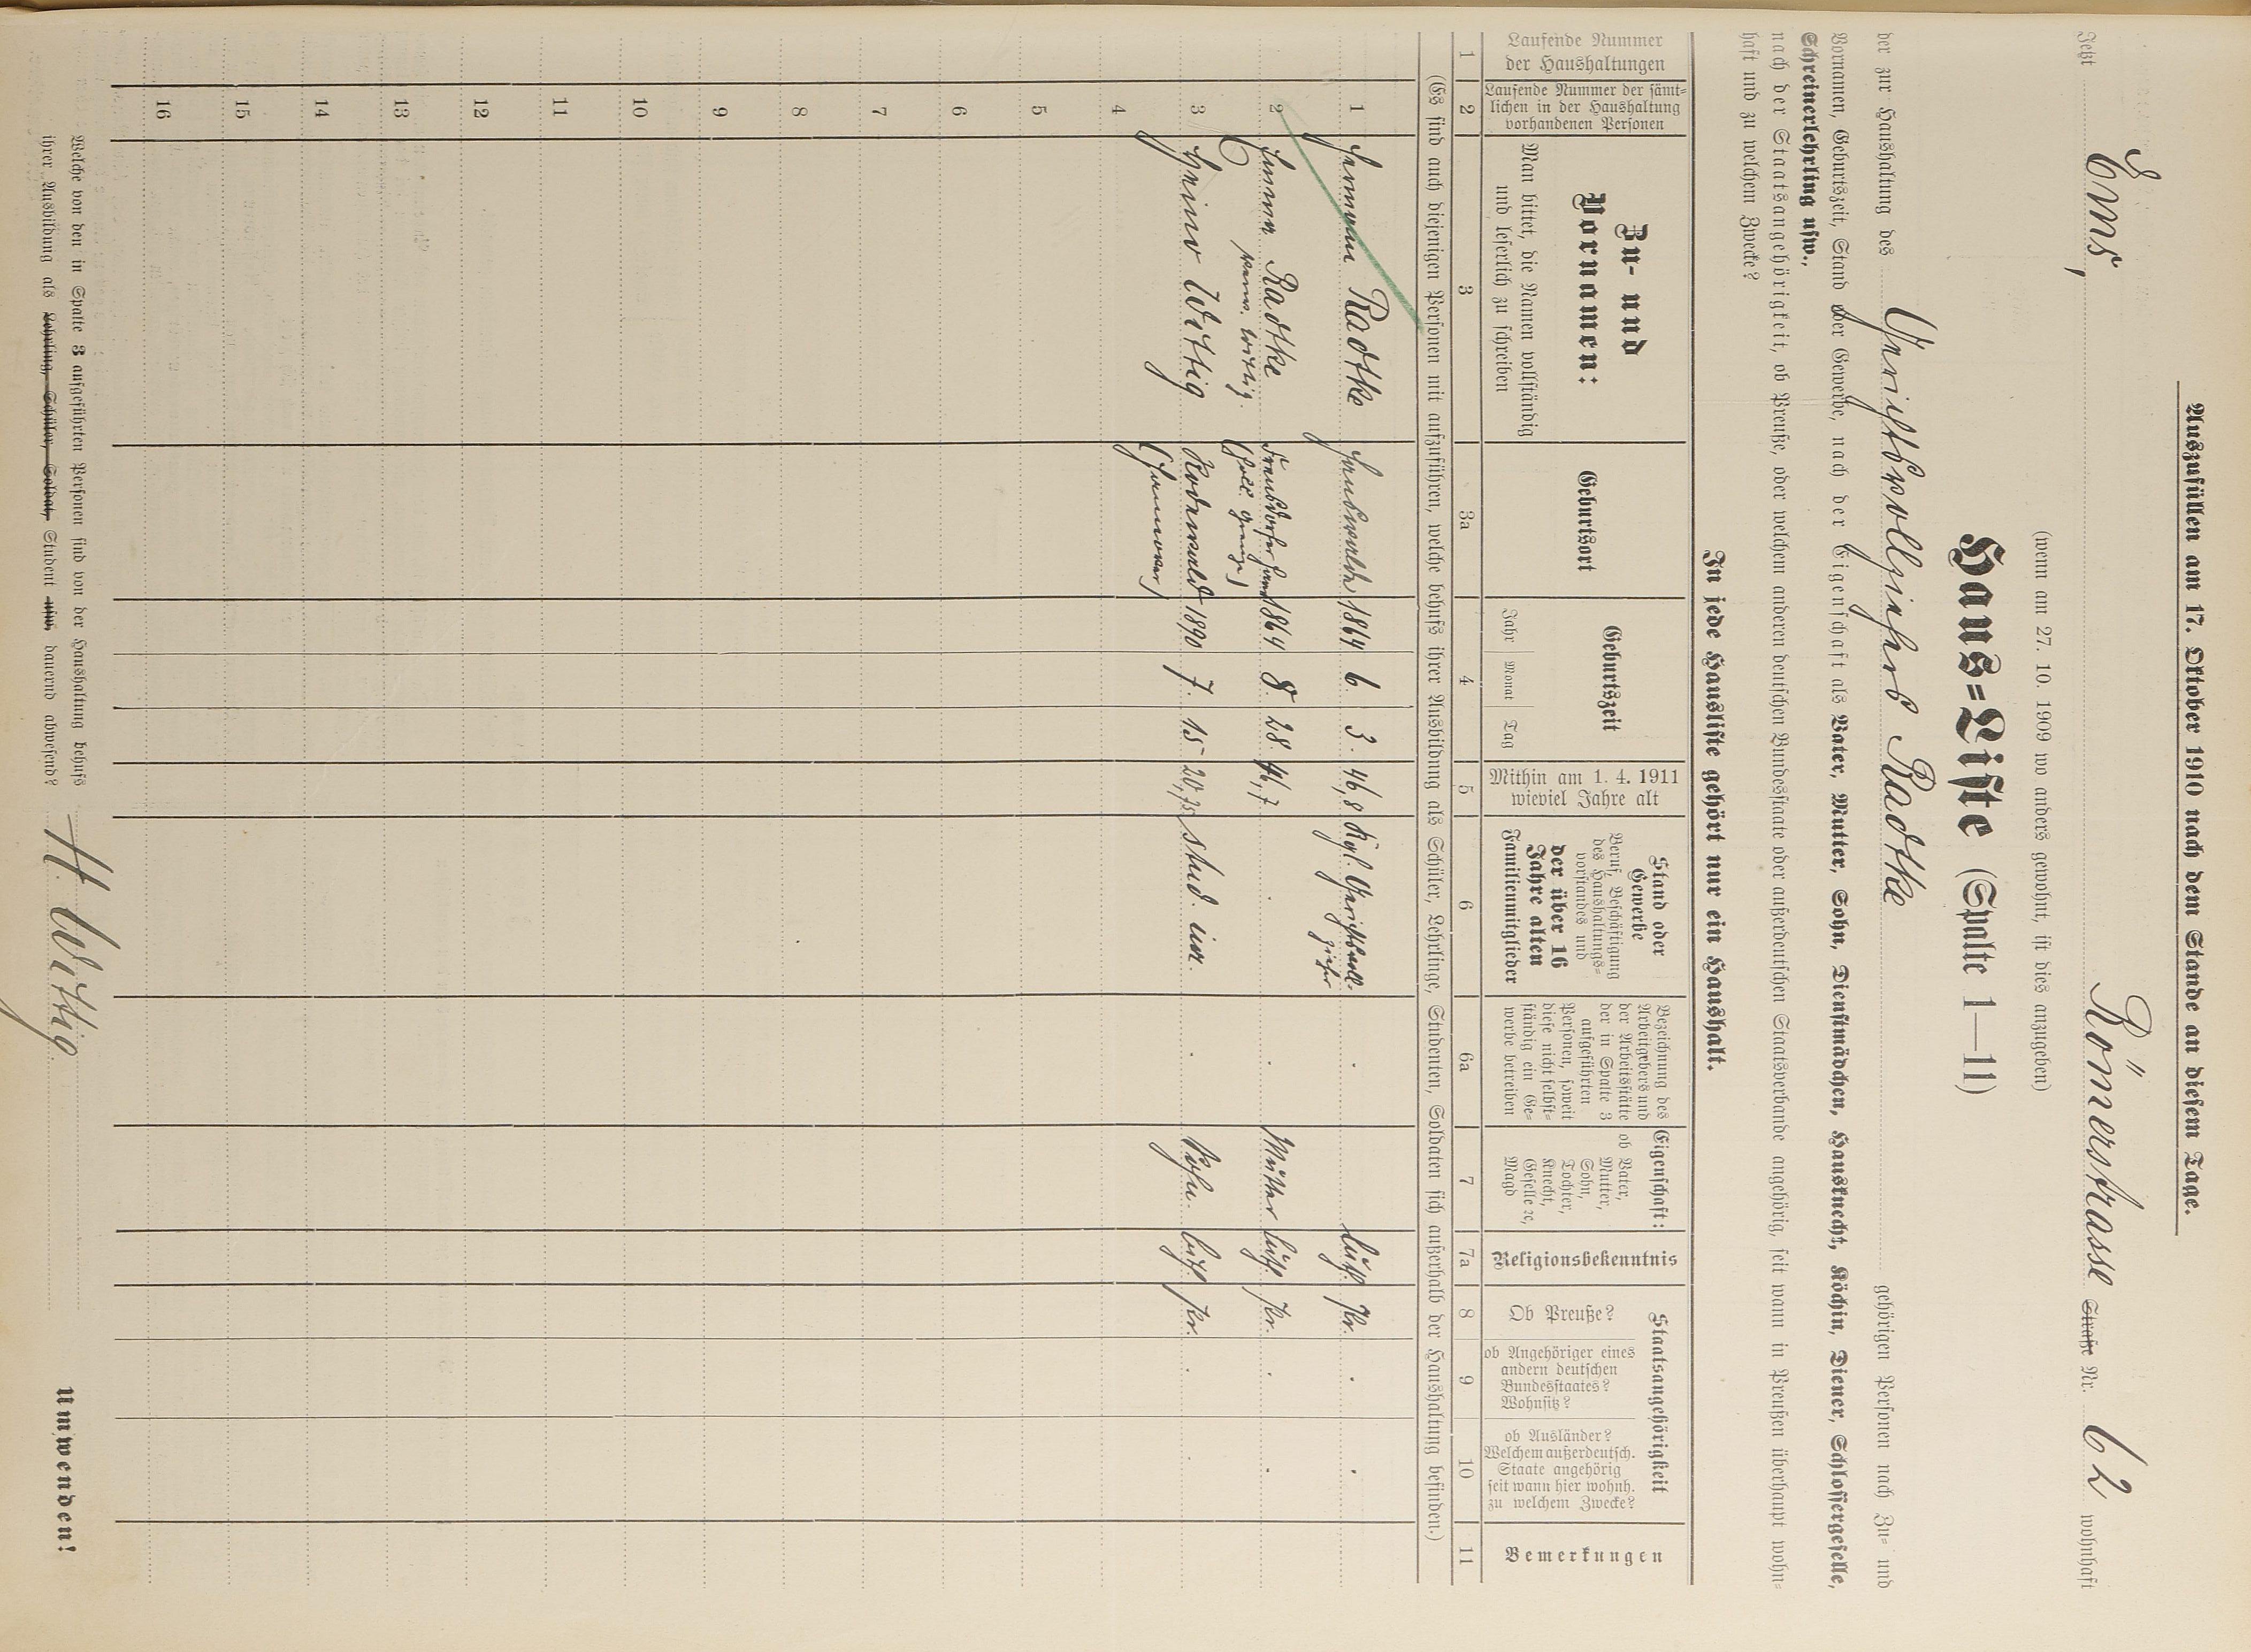 Auszufüllen am 17. Oktober 1910 nach dem Stande an diesem Tage.
Jetzt Ems, Römerstrasse Straße Nr. 62 wohnhaft
(wenn am 27. 10. 1909 wo anders gewohnt, ist dies anzugeben)
Haus=Liste (Spalte 1—11)
der zur Haushaltung des Gerichtsvollziehers Radtke gehörigen Personen nach Zu= und
Vornamen, Geburtszeit, Stand oder Gewerbe, nach der Eigenschaft als Vater, Mutter, Sohn, Dienstmädchen, Hausknecht, Köchin, Diener, Schlossergeselle,
Schreinerlehrling usw.,
nach der Staatsangehörigkeit, ob Preuße, oder welchem anderen deutschen Bundesstaate oder außerdeutschen Staatsverbande angehörig, seit wann in Preußen überhaupt wohn=
haft und zu welchem Zwecke?
In jede Hausliste gehört nur ein Haushalt.
Laufende Nummer
der Haushaltungen
Laufende Nummer der sämt=
lichen in der Haushaltung
vorhandenen Personen
Zu- und
Vornamen:
Man bittet, die Namen vollständig
und leserlich zu schreiben
Geburtsort
Geburtszeit
Jahr Monat Tag
Mithin am 1. 4. 1911
wieviel Jahre alt
Stand oder
Gewerbe
Beruf, Beschäftigung
des Haushaltungs=
vorstandes und
der über 16
Jahre alten
Familienmitglieder
Bezeichnung des
Arbeitgebers und
der Arbeitsstätte
der in Spalte 3
aufgeführten
Personen, soweit
diese nicht selbst=
ständig ein Ge=
werbe betreiben
Eigenschaft:
ob Vater,
Mutter,
Sohn,
Tochter,
Knecht,
Geselle ꝛc,
Magd
Religionsbekenntnis
Staatsangehörigkeit
Ob Preuße?
ob Angehöriger eines
andern deutschen
Bundesstaates?
Wohnsitz?
ob Ausländer?
Welchem außerdeutsch.
Staate angehörig
seit wann hier wohnh.
zu welchem Zwecke?
Bemerkungen
1 2 3 3a 4 5 6 6a 7 7a 8 9 10 11
(Es sind auch diejenigen Personen mit aufzuführen, welche behufs ihrer Ausbildung als Schüler, Lehrlinge, Studenten, Soldaten sich außerhalb der Haushaltung befinden.)
1 Hermann Radtke 1864 6. 3. 46,8 Kgl. Gerichtsvoll-
zieher luth. Pr.
2 Radtke 1864 8. 28. 46,7 Mutter luth. Pr.
verw. Wittig.
(holl. Grenze)
3 Heino Wittig Rodewald 1890 7. 15. 20,75 stud. iur. Sohn. luth. Pr.
(Hannover)
4
5
6
7
8
9
10
11
12
13
14
15
16
Welche von den in Spalte 3 aufgeführten Personen sind von der Haushaltung behufs
ihrer Ausbildung als Lehrling, Schüler, Soldat, Student usw. dauernd abwesend? H. Wittig.
Umwenden!